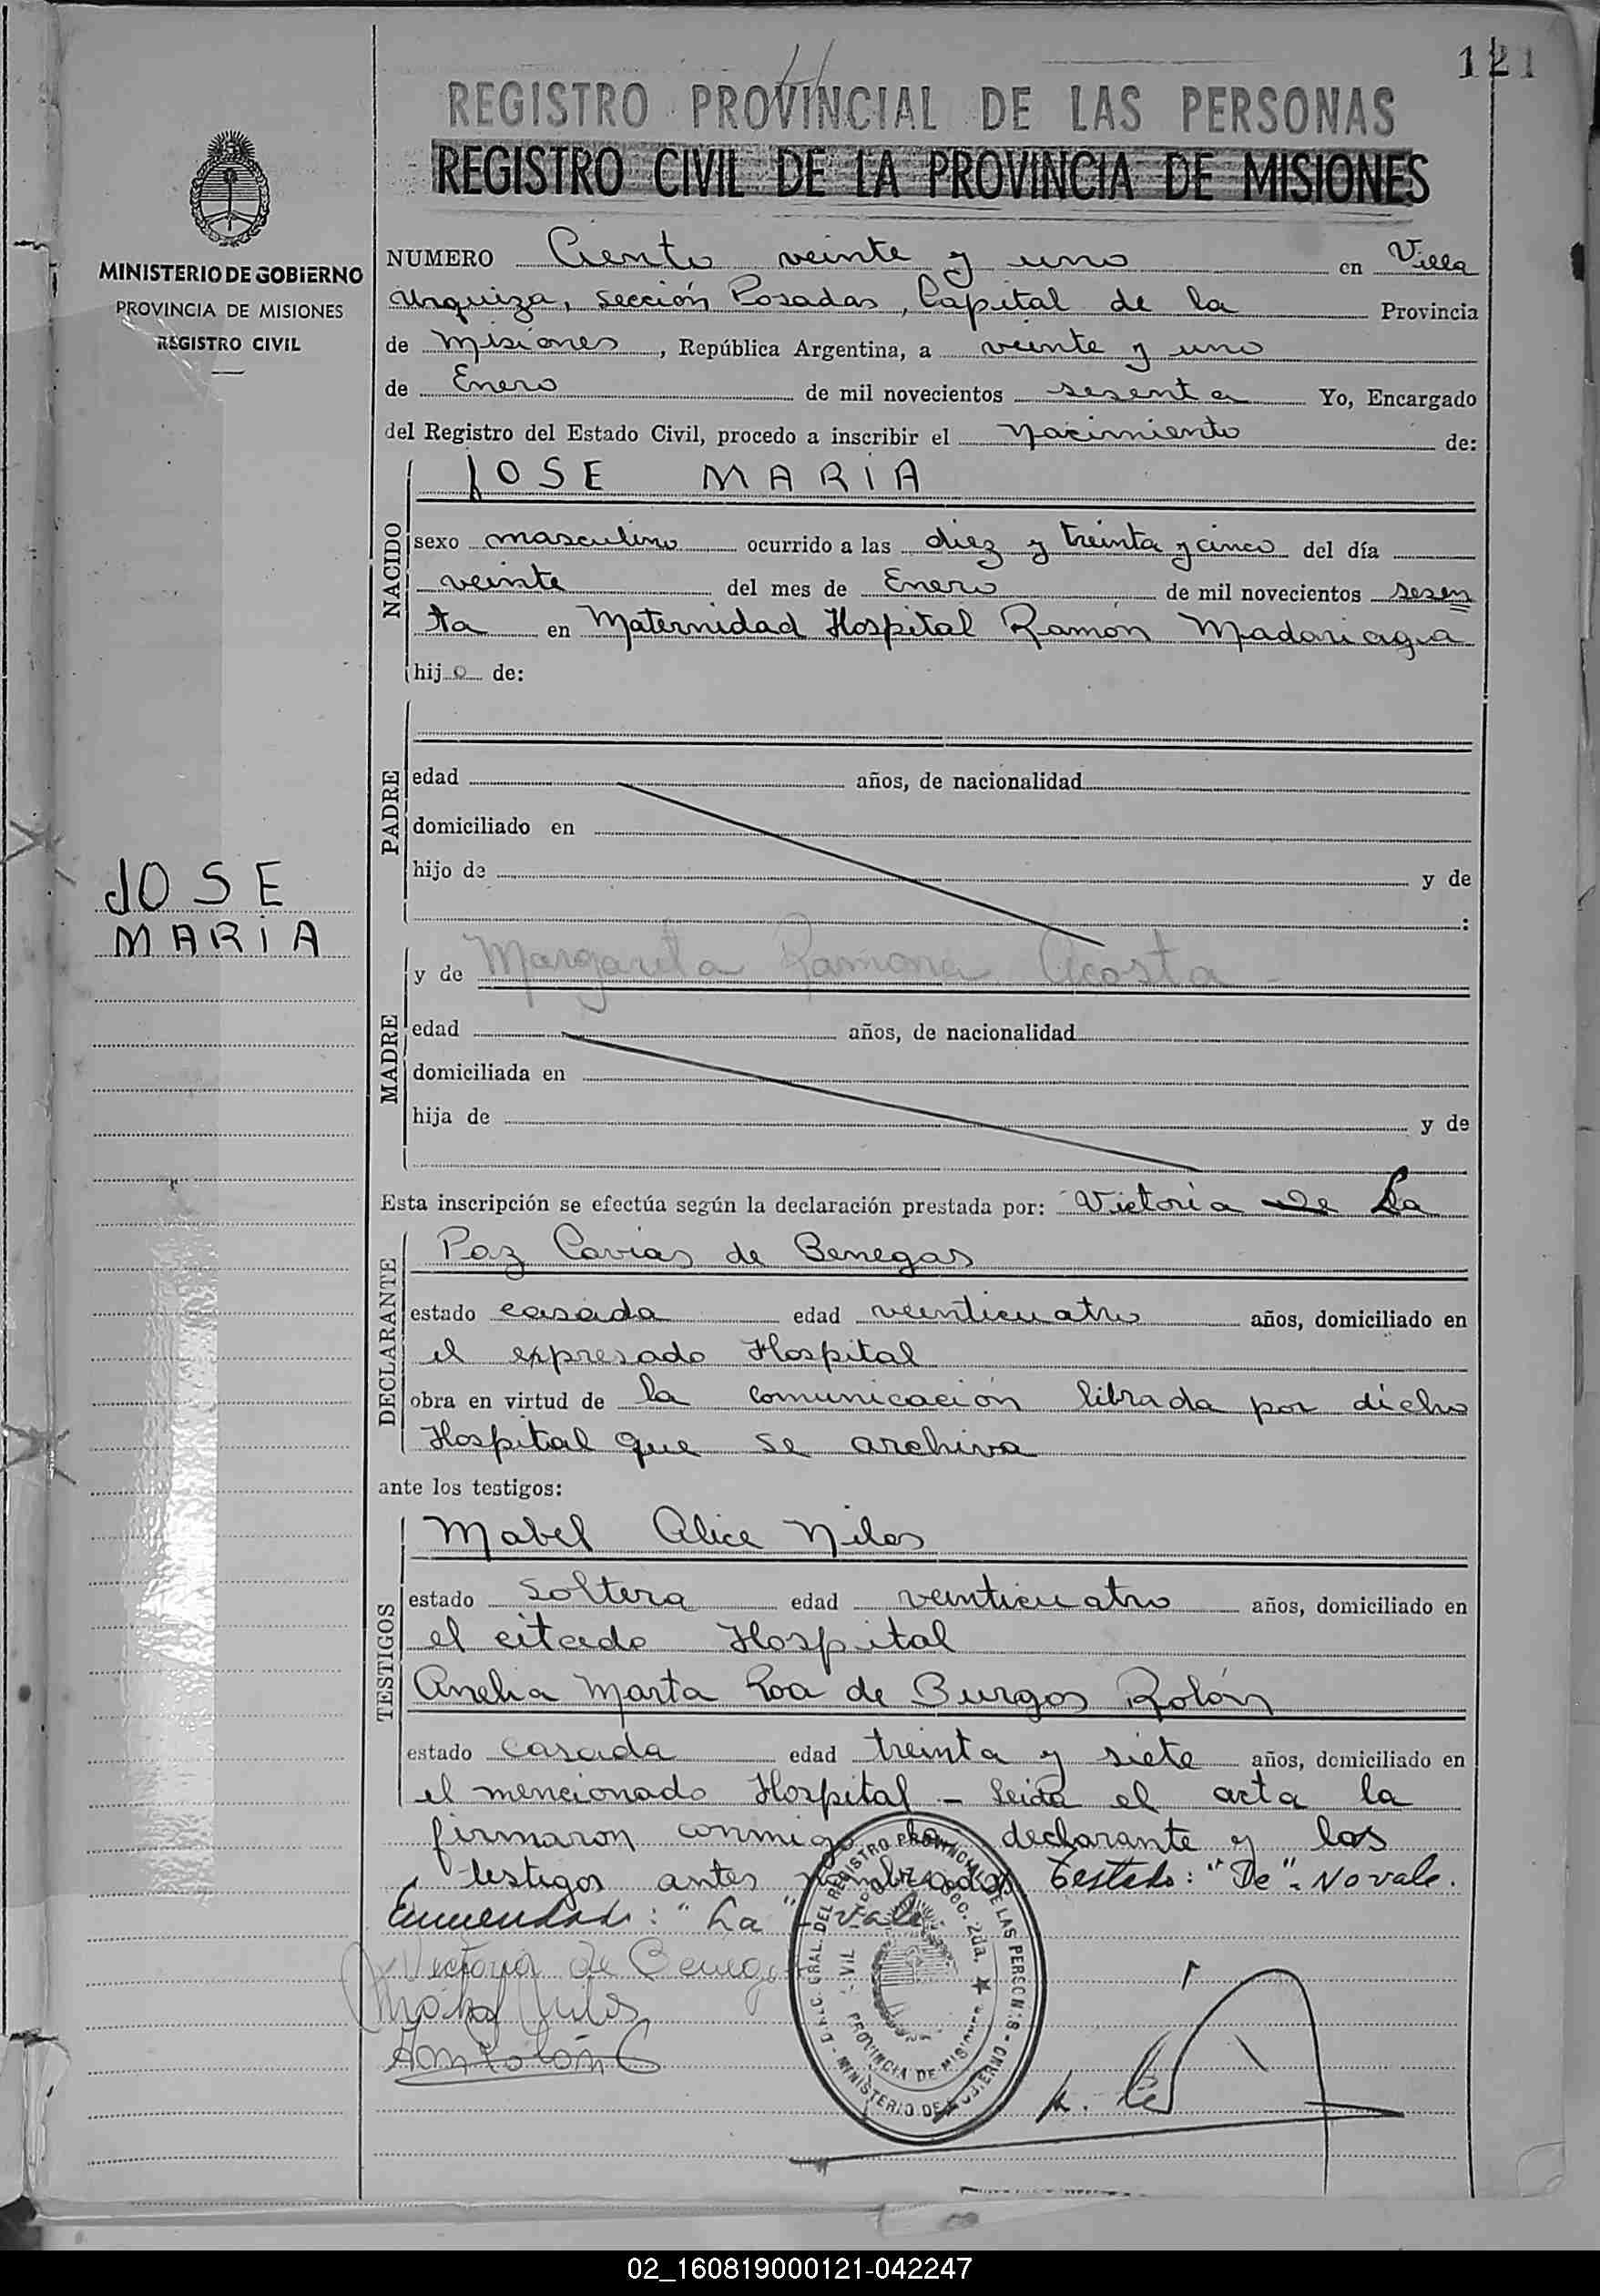 121
REGISTRO PROVINCIAL DE LAS PERSONAS
REGISTRO CIVIL DE LA PROVINCIA DE MISIONES
MINISTERIO DE GOBIERNO
PROVINCIA DE MISIONES
REGISTRO CIVIL
JOSE
MARIA
NUMERO Ciento veinte y uno en Villa
Urquiza, Sección Posadas, Capital de la Provincia
de Misiones, República Argentina, a veinte y uno
de Enero de mil novecientos sesenta Yo, Encargado
del Registro del Estado Civil, procedo a inscribir el Nacimiento de:
NACIDO
JOSE MARIA
sexo masculino ocurrido a las diez y treinta y cinco del día
veinte del mes de Enero de mil novecientos sesen
ta en Maternidad Hospital Ramón Madariagua
hijo de:
PADRE
edad años, de nacionalidad
domiciliado en
hijo de y de
:
MADRE
y de Margarita Ramona Acosta -
edad años, de nacionalidad
domiciliada en
hija de y de
Esta inscripción se efectúa según la declaración prestada por: Victoria De La
DECLARANTE
Paz Cavias de Benegas
estado casada edad veinticuatro años, domiciliado en
el expresado Hospital
obra en virtud de la comunicación librada por dicho
Hospital que se archiva
ante los testigos:
TESTIGOS
Mabel Alice Niles
estado soltera edad veinticuatro años, domiciliado en
el citado Hospital
Anelia Marta Roa de Burgos Rolón
estado casada edad treinta y siete años, domiciliado en
el mencionado Hospital - Leida el acta la
firmaron conmigo la declarante y los
testigos antes nombrados Testado: "De" - No vale.
Enmendado: "La" - Vale
Victoria de Beneg
DEL REGISTRO PROVINCIAL DE LAS PERSONAS - MINISTERIO DE GOBIERNO
PROVINCIA DE MISIONES
02_160819000121-042247